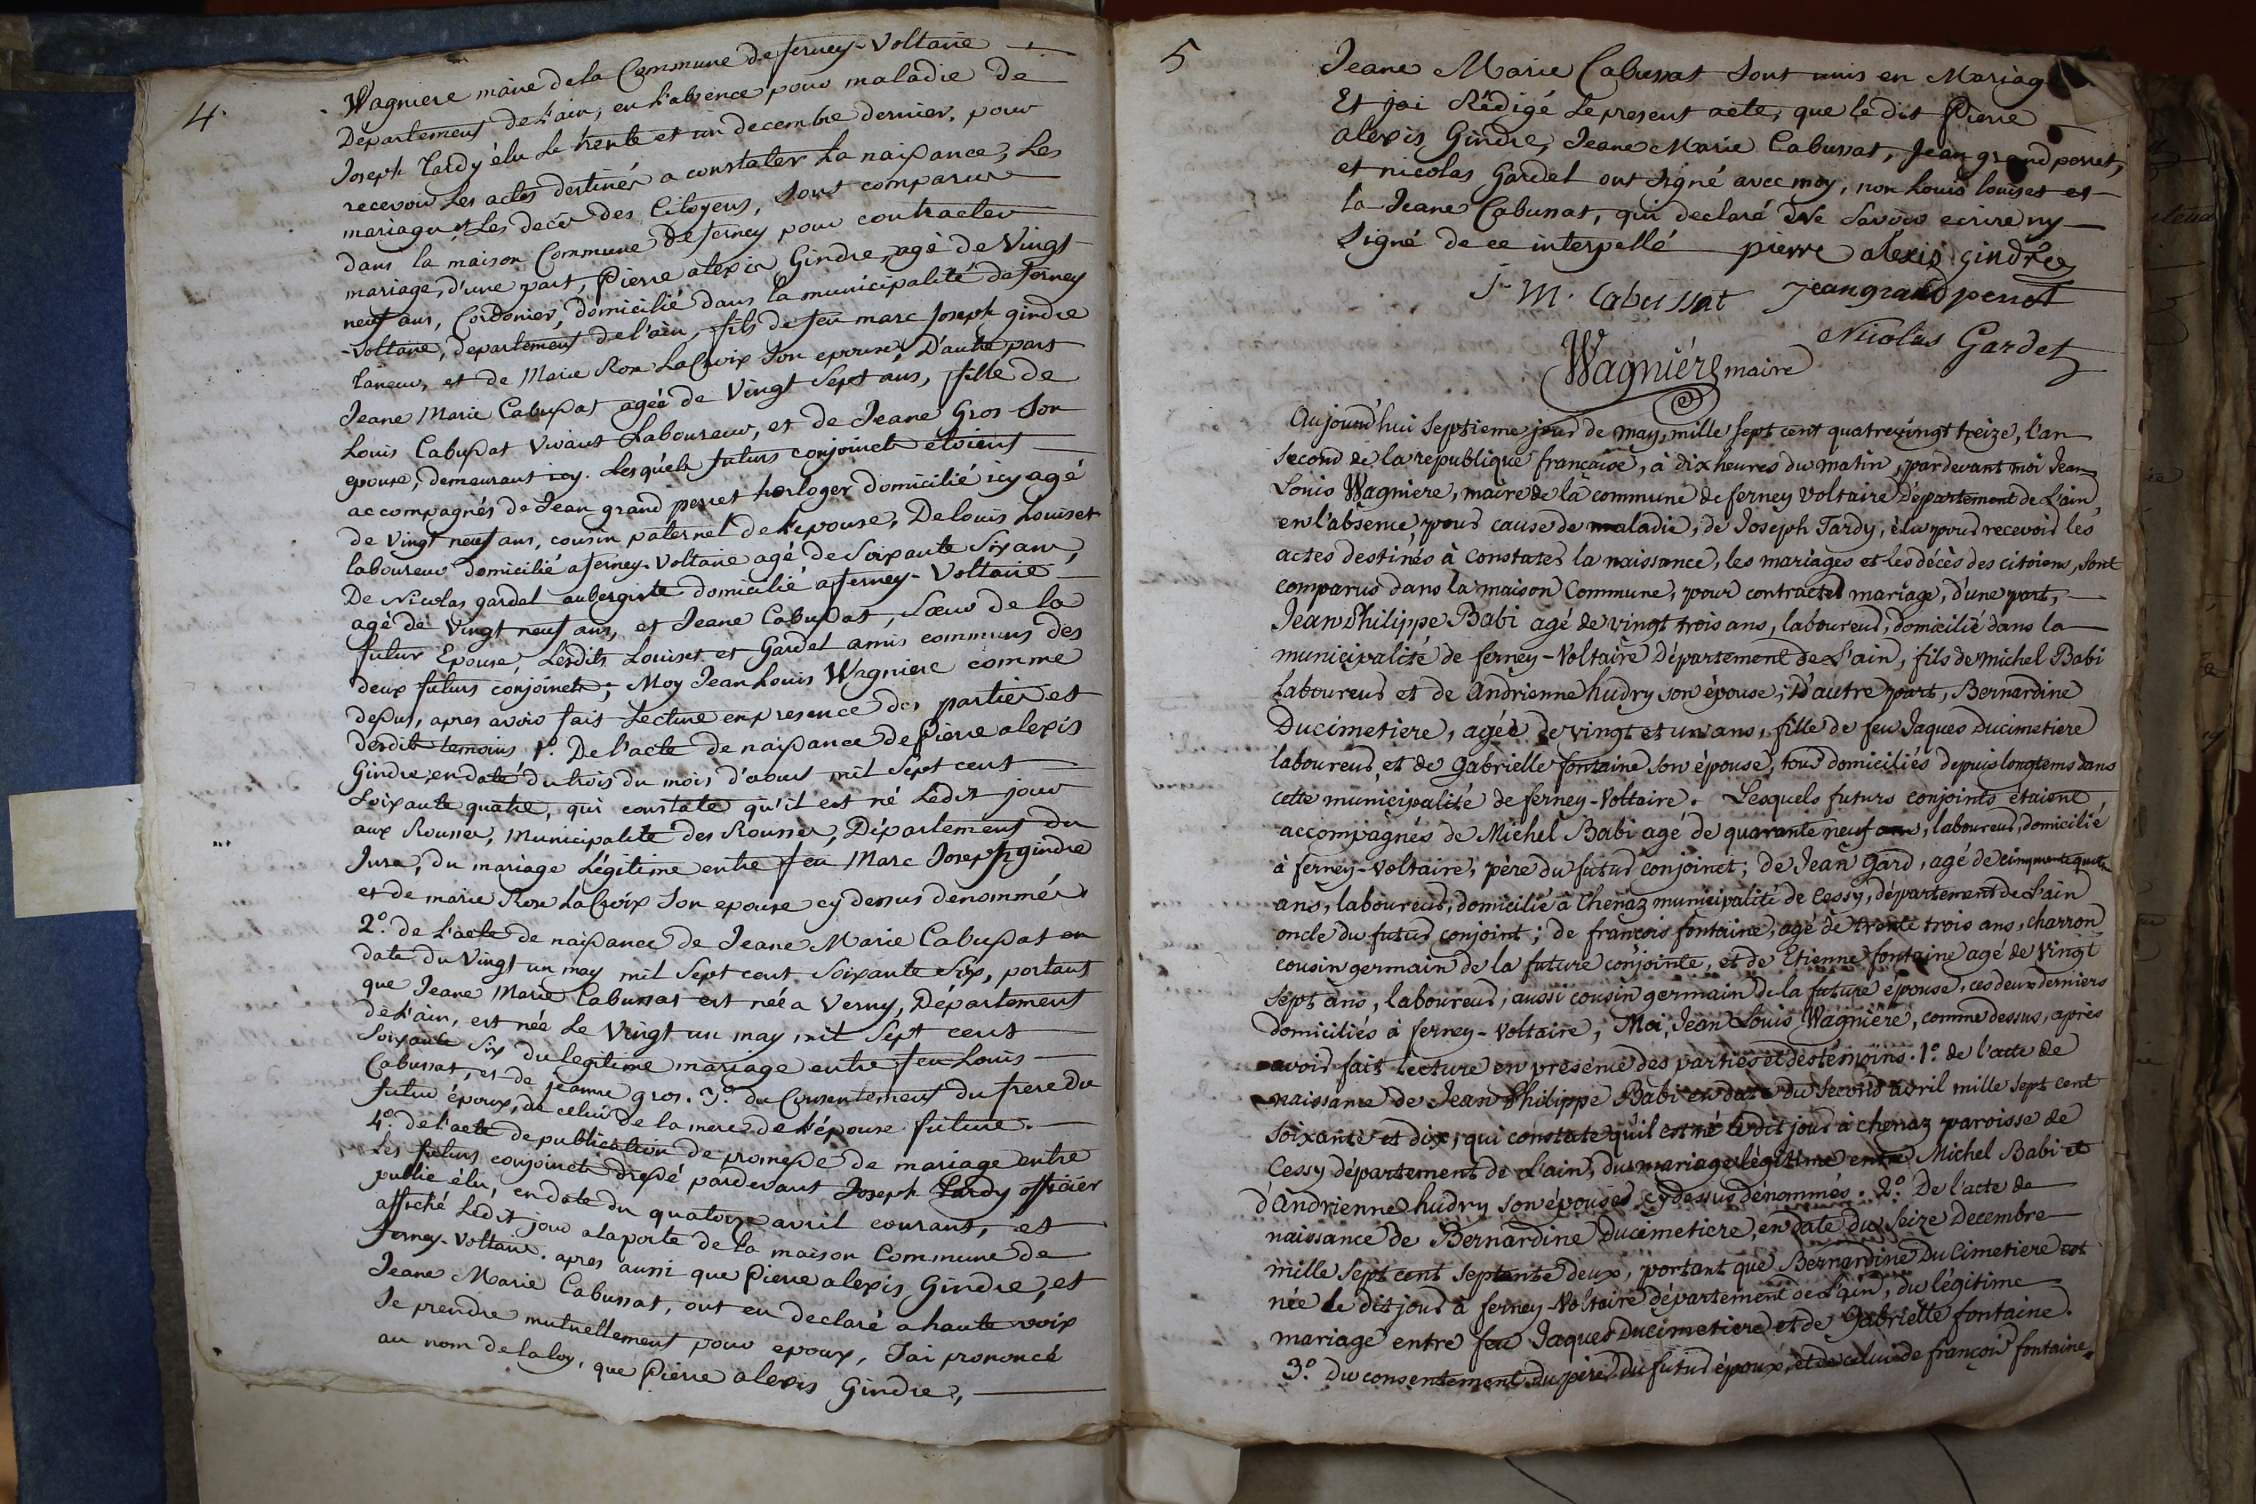 4.
Wagniere maire de la Commune de ferney-Voltaire
Département de L'ain, en L'absence pour maladie de
Joseph Tardy élu Le trente et un decembre dernier, pour
recevoir Les actes destinés a constater La naissance, Les
mariages et Les decès des Citoyens, sont comparus
dans la maison Commune de ferney pour contracter
mariage, d'une part, Pierre alexis Gindre, agé de Vingt
neuf ans, Cordonier, domicilié dans la municipalité de ferney
-Voltaire, departement de l'ain, fils de feu marc Joseph gindre
Taneur, et de Marie Rose LaCroix son epouse, D'autre part
Jeane Marie Cabussat agée de Vingt Sept ans, fille de
Louis Cabussat Vivant Laboureur, et de Jeane Gros son
epouse, demeurant icy. Lesquels futurs conjoincts etoient
accompagnés de Jean grand perret horloger domicilié icy agé
de Vingt neuf ans, cousin paternel de L'epouse, De Louis Louiset
laboureur domicilié a ferney-Voltaire agé de Soixante Six ans,
De Nicolas gardet aubergiste domicilié a ferney-Voltaire
agé de Vingt neuf ans, et Jeane Cabussat, Sœur de la
futur Epouse, Lesdits Louiset et Gardet amis communs des
deux futurs conjoincts; Moy Jean Louis Wagniere comme
dessus, apres avoir fait Lecture en presence des parties et
desdits temoins 1º. De l'acte de naissance de Pierre alexis
Gindre, en date du trois du mois d'aoust mil Sept cent
Soixante quatre, qui constate qu'il est né Ledit jour
aux Rousses, Municipalité des Rousses, Département du
Jura, du mariage Légitime entre feu Marc Joseph gindre
et de marie Rose LaCroix Son epouse cy dessus denommés
2º. de L'acte de naissance de Jeane Marie Cabussat en
date du Vingt un may mil Sept cent Soixante Six, portant
que Jeane Marie Cabussat est née a Verny, Département
de L'ain, est née Le Vingt un may mil Sept cent
Soixante Six du legitime mariage entre feu Louis
Cabussat, et de jeanne gros. 3º. du Consentement du frere du
futur époux, de celui de la mere de L'épouse future.
4º. de l'acte de publication de promesse de mariage entre
Les futurs conjoincts dressé pardevant Joseph Tardy officier
public élu, en date du quatorze avril courant, et
affiché Ledit jour a la porte de la maison Commune de
ferney-Voltaire. apres aussi que Pierre alexis Gindre, et
Jeane Marie Cabussat, ont eu declaré a haute voix
Se prendre mutuellement pour epoux, J'ai prononcé
au nom de la loy, que Pierre alexis Gindre,
5
Jeane Marie Cabussat Sont unis en Mariage
Et j'ai Rédigé Le present acte, que le dit Pierre
alexis Gindre, Jeane Marie Cabussat, Jean grand perret,
et nicolas Gardet ont signé avec moy, non Louis louiset et
la Jeane Cabussat, qui declaré Ne Savoir ecrire ny
Signé de ce interpellé pierre alexis gindre
J. M. Cabussat jean grand perret
Nicolas Gardet
Wagniére maire
Aujourd'hui Septieme jour de may, mille sept cent quatrevingt treize, l'an
second de la republique française, à dix heures du matin, par devant moi Jean
Louis Wagniere, maire de la commune de ferney Voltaire Département de L'ain,
en l'absence, pour cause de maladie, de Joseph Tardy, élu pour recevoir les
actes destinés à constater la naissance, les mariages et les décès des citoiens, sont
comparus dans la maison Commune, pour contracter mariage, d'une part,
Jean Philippe Babi agé de vingt trois ans, laboureur, domicilié dans la
municipalité de ferney-Voltaire Département de L'ain, fils de Michel Babi
Laboureur et de Andrienne hudry son épouse; D'autre part, Bernardine
Ducimetiere, agée de vingt et un ans, fille de feu Jaques Ducimetiere
laboureur et de Gabrielle fontaine son épouse, tous domiciliés depuis longtems dans
cette municipalité de ferney-Voltaire. Lesquels futurs conjoints étaient
accompagnés de Michel Babi agé de quarante neuf ans, laboureur, domicilié
à ferney-Voltaire, père du futur conjoinct; de Jean Gard, agé de cinquante quatre
ans, laboureur, domicilié à Chenaz municipalité de Cessy, département de L'ain
oncle du futur conjoint; de françois fontaine, agé de trente trois ans, charron
cousin germain de la future conjointe, et de Etienne fontaine agé de vingt
sept ans, laboureur, aussi cousin germain de la future épouse, ces deux derniers
domiciliés à ferney-Voltaire; Moi, Jean Louis Wagniere, comme dessus, après
avoir fait lecture en présence des parties et des témoins. 1º. de l'acte de
naissance de Jean Philippe Babi en date du Second avril mille sept cent
soixante et dix, qui constate qu'il est né le dit jour à chenaz paroisse de
Cessy département de L'ain, du mariage légitime entre Michel Babi et
d'Andrienne hudry son épouse cy dessus dénommés. 2º. De l'acte de
naissance de Bernardine Ducimetiere, en date du Seize Decembre
mille Sept cent septante deux, portant que Bernardine Du Cimetiere est
née le dit jour à ferney-Voltaire département de L'ain, du légitime
mariage entre feu Jaques Ducimetiere et de Gabrielle fontaine.
3º. Du consentement du père du futur époux, et de celui de françois fontaine